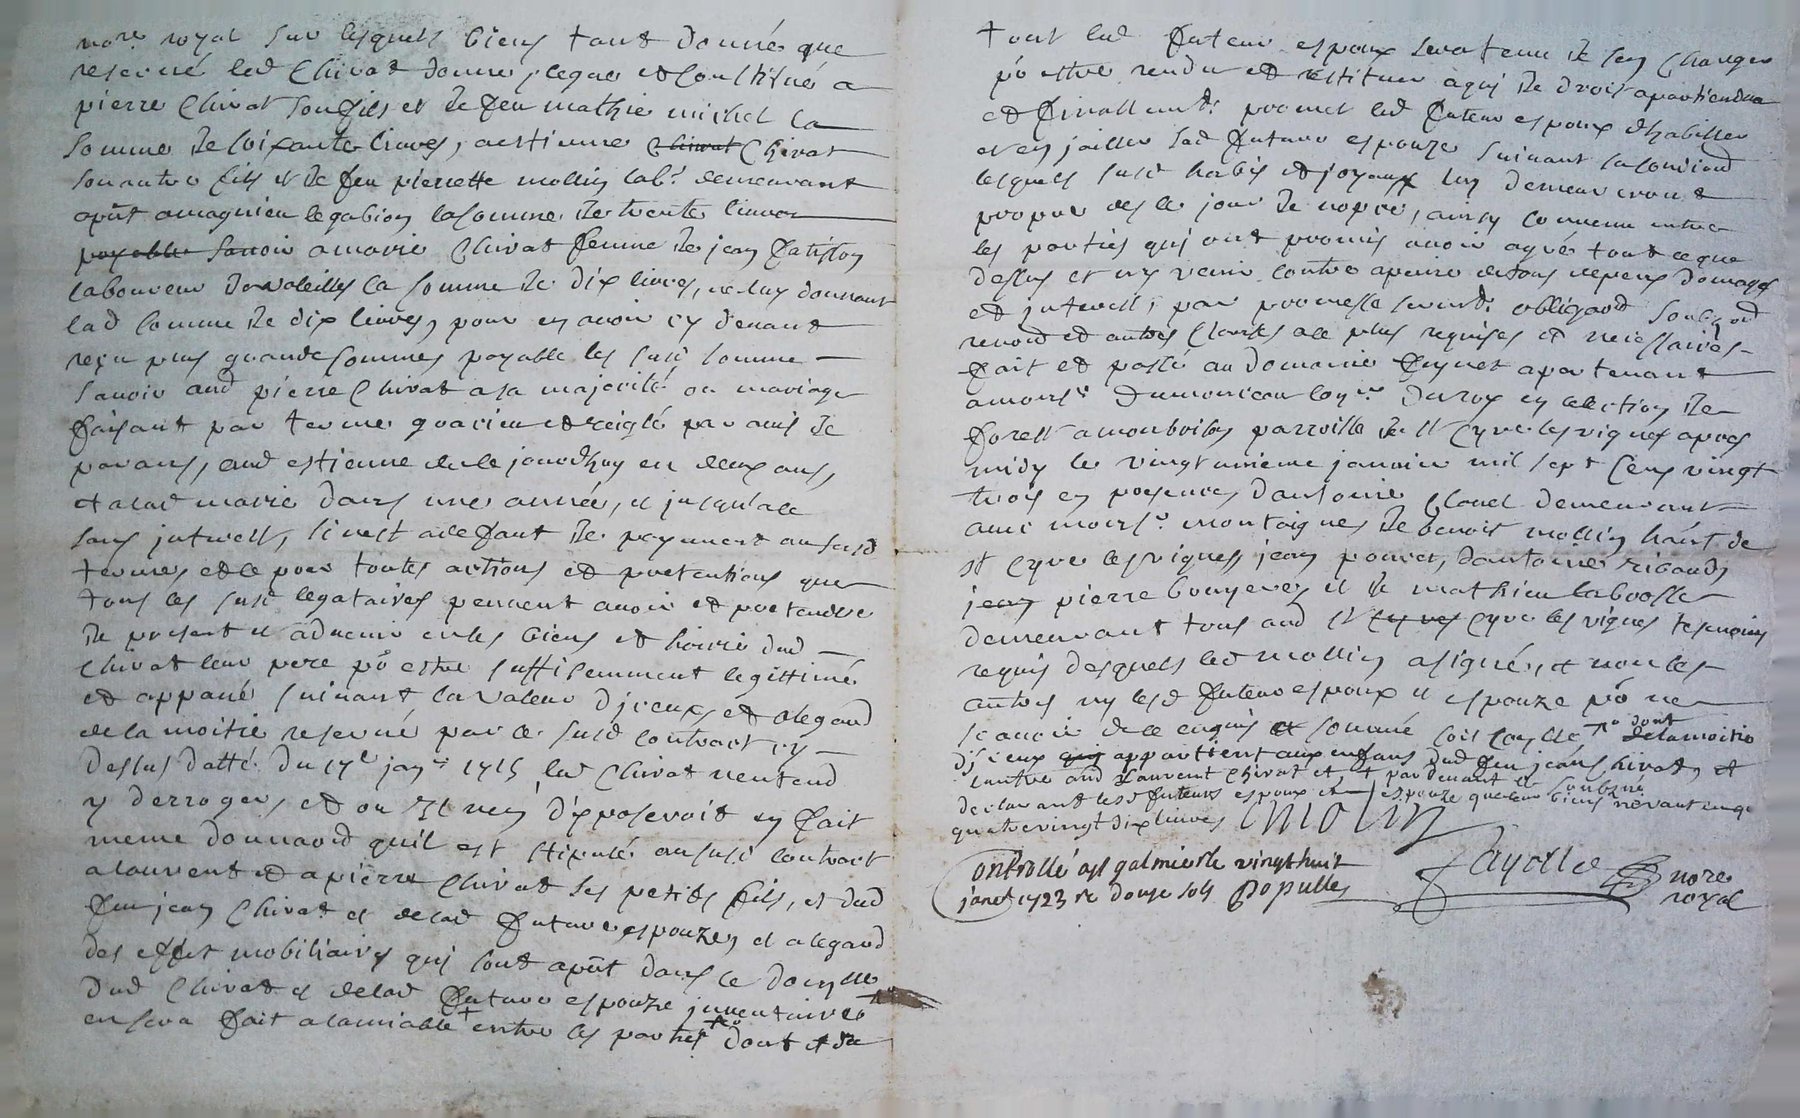 nore royal sur lesquels biens tant donné que
reservé led Chivat donne, legue et constitué a
pierre Chivat son fils et de feu mathie michel la
somme de soixante livres, a estienne Chivat Chivat
son autre fils et de feu pierrette mollin lab.r demeurant
apñt a magnieu le gabion la somme de trente livres
payable savoir a marie Chivat femme de jean fatisson
laboureur de valeilles la somme de dix livres, ne luy donnant
lad somme de dix livres, pour en avoir cy devant
reçu plus grande sommes payable les susd somme
savoir aud pierre Chivat a sa majorité ou mariage
faisant par terme gracieux et reiglé par avis de
parans, aud estienne de ce jourdhuy en deux ans,
et a lad marie dans une année, et jusqu'alé
sans jnterests, si n'est a deffaut de payement aususd
termes et ce pour toutes actions et pretentions que
tous les susd legataires peuvent avoir et pretendre
de present et advenir en les biens et hoirie dud
Chivat leur pere põ estre suffisemment legittimé
et appané suivant la valeur d'jceux, et alegard
de la moitié reservé par le susd contract cy
dessus datté du 17e janr 1715 led Chivat n'entend
y derroger, et ou Il n'en disposeroit en fait
meme donnaõn quil est stipulé aususd contract
a laurent et a pierre Chivat ses petits fils, et dud
feu jean Chivat et de lad future espouze, et alegard
des effets mobiliaires qui sont apñt dans le domaine
dud Chivat et de lad future espouze jnventaire
en sera fait a lamiable entre les parties dont et du
tout led futeur espoux sera tenu de sen charger
põ estre rendu et restituer a qui de droit apartiendra
et finallemt promet led futeur espoux d'habiller
et enjoailler sad future espouze suivant sa condiõn
lesquels susd habis et joyaux luy demeureront
propre des le jour de nopce, ainsy convenu entre
les parties qui ont promis avoir agré tout ce que
dessus et ny venir contre apeine de tous depens domages
et jnterests, par promesse sermt obligaõn soubzõn
renonõn et autres clauses a ce plus requises et necessaires
fait et passé au domaine feynet apartenant
a monsr Dumonceau consr du roy en election de
forest a montboibs parroisse de st Cyre les vignes apres
midy le vingt unieme janvier mil sept cens vingt
trois en presences d'antoine Clavel demeurant
avec monsr montaignes de benoit mollin habt de
st Cyre les vignes, jean poncet, d'antoine rigaud,
jean pierre bouyeres et de mathieu labrosse
demeurant tous aud st Cyres Cyre les vignes tesmoins
requis desquels led mollin a signé, et non les
autres ny lesd futeur espoux et espouze põ ne
scavoir de ce enquis et sommé soit dont
d'jceux qui appartient aux enfans dud feu jean Chivat, et
lautre aud Laurent Chivat et, par devant le soubzné
declarant lesd futeurs espoux et espouze que leur biens
quatrevingt dix livres Mollin
Controllé a st galmier le vingt huit
janer 1723 r douze sols Populle
Fayolle nore
royal